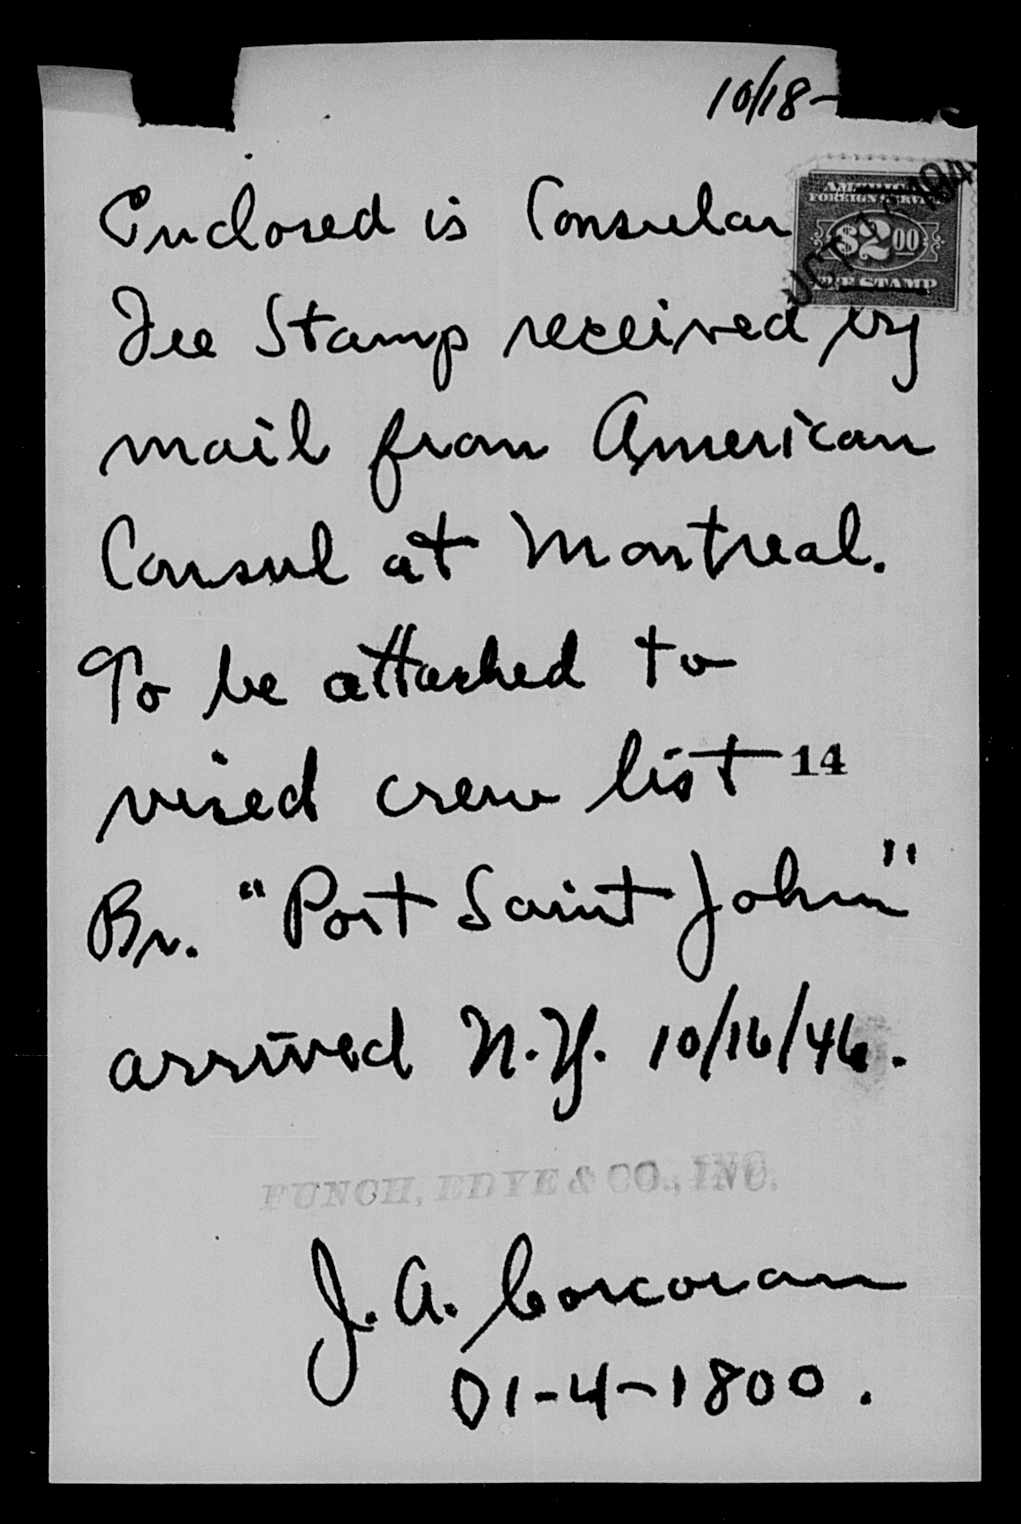 10/18-
Enclosed is Consular
AMERICAN
FOREIGN SERVICE
$2.00
FEE STAMP
Fee Stamp received by
mail from American
Consul at Montreal.
To be attached to
vised crew list 14
Br. "Port Saint John"
arrived N.Y. 10/16/46.
FUNCH, EDYE & CO., INC.
J. A. Corcoran
DI-4-1800.